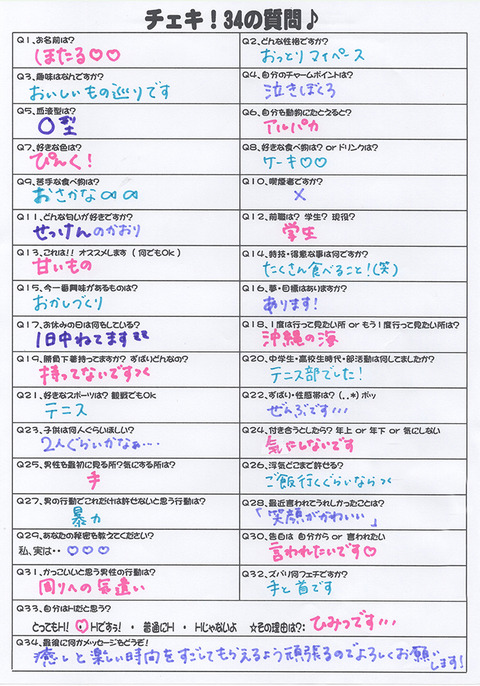 チェキ！34の質問♪
Q1、お名前は？
ほたる♡♡
Q2、どんな性格ですか？
おっとり マイペース
Q3、趣味はなんですか？
おいしいもの巡りです
Q4、自分のチャームポイントは？
泣きぼくろ
Q5、血液型は？
O型
Q6、自分を動物にたとえると？
アルパカ
Q7、好きな色は？
ぴんく！
Q8、好きな食べ物は？ or ドリンクは？
ケーキ♡♡
Q9、苦手な食べ物は？
おさかな
Q10、喫煙者ですか？
×
Q11、どんな匂いが好きですか？
せっけんのかおり
Q12、前職は？ 学生？ 現役？
学生
Q13、これは！！ オススメします （ 何でもOk ）
甘いもの
Q14、特技・得意な事は何ですか？
たくさん食べること！(笑)
Q15、今一番興味があるものは？
おかしづくり
Q16、夢・目標はありますか？
あります！
Q17、お休みの日は何をしている？
1日中ねてます
Q18、1度は行って見たい所 or もう1度行って見たい所は？
沖縄の海
Q19、勝負下着持ってますか？ ずばりどんなの？
持ってないです
Q20、中学生・高校生時代・部活動は何してましたか？
テニス部でした！
Q21、好きなスポーツは？ 観戦でもOk
テニス
Q22、ずばい・性感帯は？ (．．*) ポッ
ぜんぶです…
Q23、子供は何人ぐらいほしい？
2人ぐらいかなぁ…
Q24、付き合うとしたら？ 年上 or 年下 or 気にしない
気にしないです
Q25、男性を最初に見る所？気にする所は？
手
Q26、浮気どこまで許せる？
ご飯行くぐらいなら
Q27、男の行動でこれだけは許せないと思う行動は？
暴力
Q28、最近言われてうれしかったことは？
「笑顔がかわいい」
Q29、あなたの秘密を教えてください？
私、実は・・ ♡♡♡
Q30、告白は 自分から or 言われたい
言われたいです♡
Q31、かっこいいと思う男性の行動は？
周りへの気遣い
Q32、ズバリ何フェチですか？
手と首です
Q33、自分はHだと思う？
とってもH！ ・ Hですぅ！ ・ 普通にH ・ Hじゃないよ ☆その理由は？： ひみつです…
Q34、最後に何かメッセージをどうぞ！
癒しと楽しい時間をすごしてもらえるよう頑張るのでよろしくお願いします！